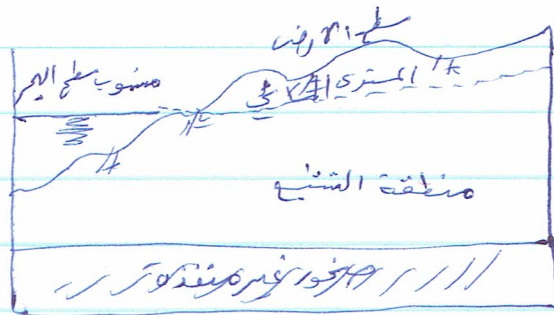 سطح الارض
منسوب سطح البحر
المستوى المائي
منطقة التشبع
صخور غير منفذة